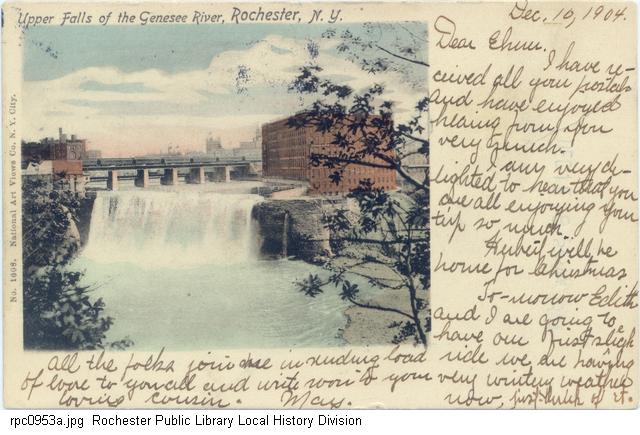 Upper Falls of the Genesee River, Rochester, N. Y.
No. 1008. National Art Views Co., N. Y. City.
Dec. 10, 1904.
Dear Chum.
I have re-
ceived all your postals
and have enjoyed
hearing from you
very much.
I am very de-
lighted to hear that you
are all enjoying your
trip so much.
Hubert will be
home for Christmas
To-morrow Edith
and I are going to
have our first sleigh
ride we are having
very wintery weather
now, just think of it.
all the folks join me in sending load
of love to you all and write soon to your
loving cousin. May.
rpc0953a.jpg Rochester Public Library Local History Division